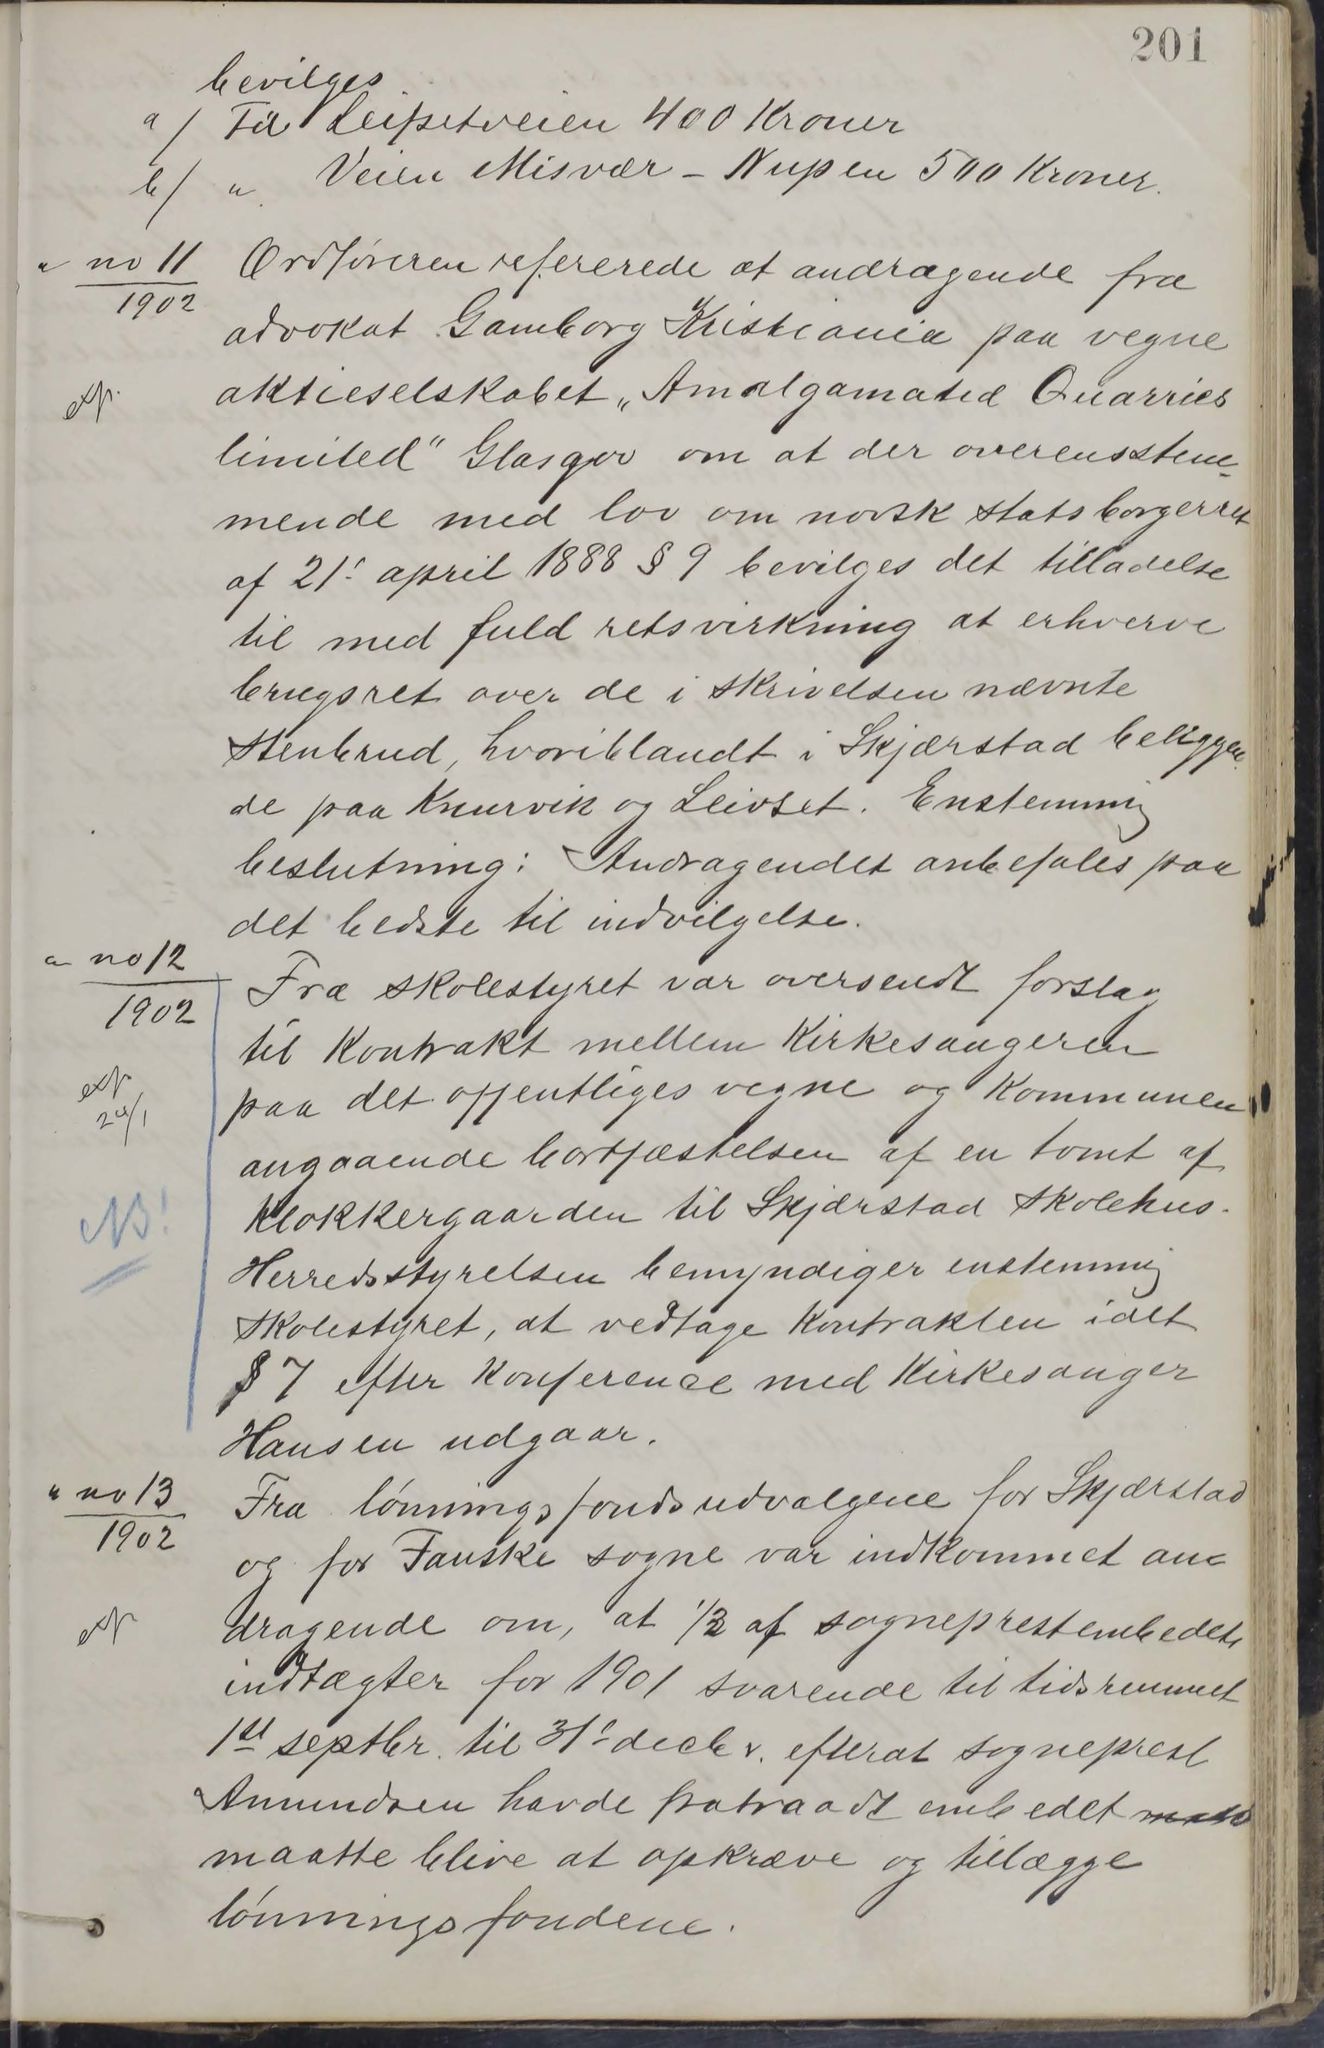 201
bevilges
a/ Til Leifsetveien 400 Kroner
b/ " Veien Misvær - Nupen 500 Kroner.
" no 11
1902
Ordføreren refererede et andragende fra
advokat Gamborg Kristiania paa vegne
exp.
aktieselskabet „Amalgamated Quarries
limited" Glasgov om at der overensstem-
mende med lov om norsk statsborgerret
af 21' april 1888 § 9 bevilges det tilladelse
til med fuld retsvirkning at erhverve
brugsret over de i skrivelsen nævnte
Stenbrud, hvoriblandt i Skjærstad beliggen-
de paa Knurvik og Leivset. Enstemmig
beslutning: Andragendet anbefales paa
det bedste til indvilgelse.
" no 12
1902
Fra skolestyret var oversendt forslag
til Kontrakt mellem Kirkesangeren
exp
24/1
paa det offentliges vegne og Kommunen
angaaende bortfæstelsen af en tomt af
NB!
Klokkergaarden til Skjærstad Skolehus.
Herredsstyrelsen bemyndiger enstemmig
Skolestyret, at vedtage Kontrakten idet
§ 7 efter Konference med Kirkesanger
Hansen udgaar.
" no 13
1902
Fra lønningsfondsudvalgene for Skjærstad
og for Fauske sogne var indkommet an-
exp
dragende om, at 1/3 af sogneprestembedets
indtægter for 1901 svarende til tidsrummet
1st septbr. til 31' decbr. efterat sogneprest
Amundsen havde fratraadt embedet
maatte blive at opkræve og tillægge
lønningsfondene.